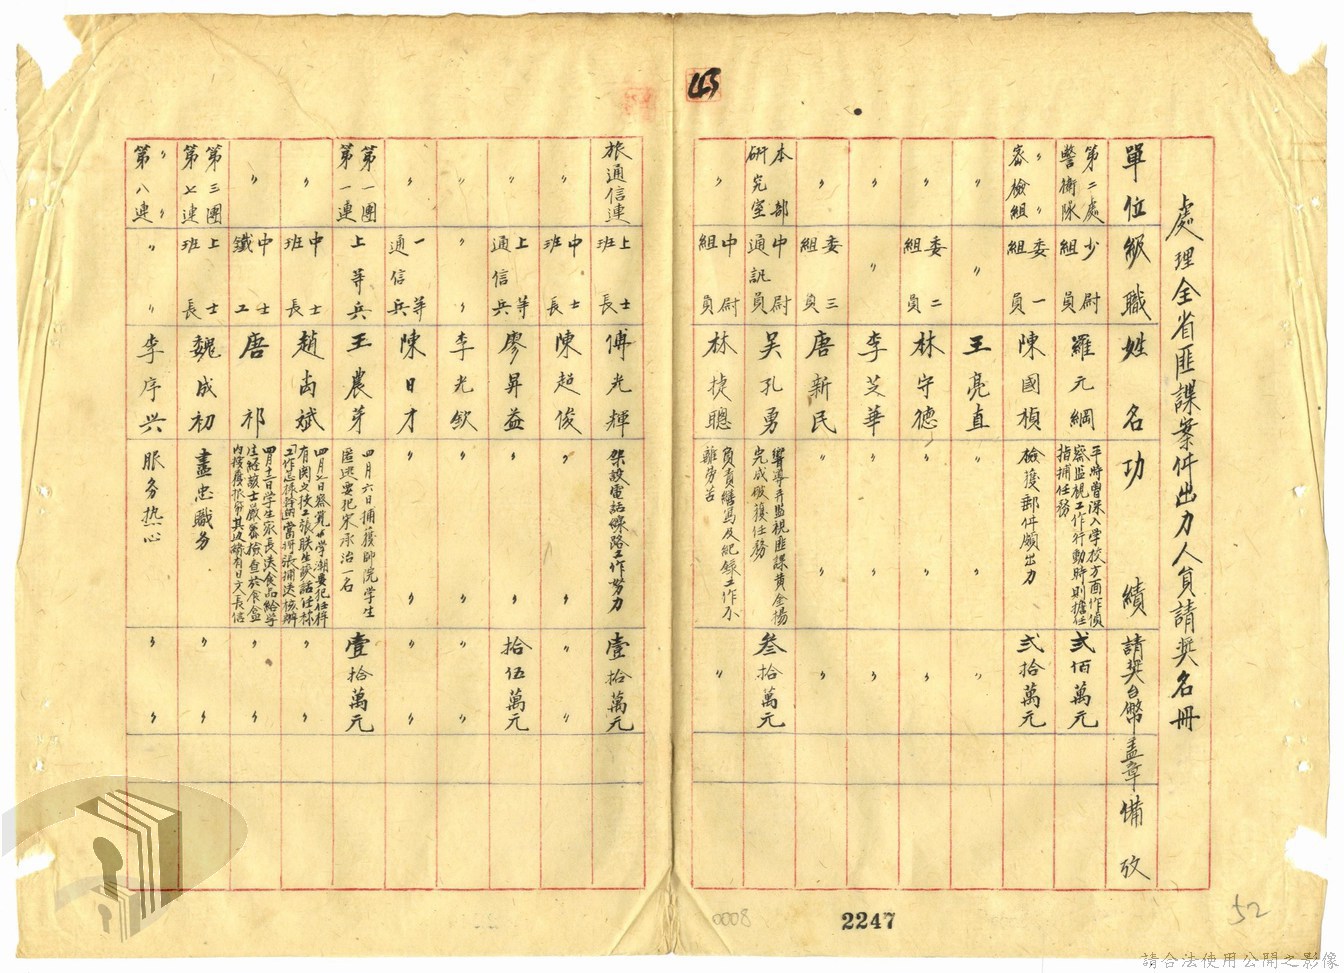 處理全省匪諜案件出力人員請獎名冊
單位 級職 姓名 功績 請獎台幣 蓋章 備攷
第二處警衛隊 少尉組員 羅元綱 平時曾深入学校方面作偵察监視工作行動時則擔任指捕任務 弍佰萬元
〃〃審檢組 委一組員 陳國楨 檢獲郵件頗出力 弍拾萬元
〃 〃 王亮直 〃 〃
〃 委二組員 林守德 〃 〃
〃 〃 李芝華 〃〃 〃
〃 委三組員 唐新民 〃〃 〃
本部研究室 中尉通訊員 吴孔勇 嚮導并监視匪諜黄金揚完成破獲任務 叁拾萬元
〃 中尉組員 林捷聰 負責繕寫及紀錄工作不辭劳苦 〃〃
旅通信連 上士班長 傅光輝 架設電話線路工作努力 壹拾萬元
〃 中士班長 陳超俊 〃〃 〃〃
〃 上等通信兵 廖昇益 〃〃 拾伍萬元
〃 〃〃 李光欽 〃〃 〃〃
〃 一等通信兵 陳日才 〃〃 〃〃
第一團第一連 上等兵 王農芽 四月六日捕獲師院学生匿迯要犯宋承治一名 壹拾萬元
〃 中士班長 趙尚斌 四月七日察覺 〃〃
〃 中士鐵工 唐祁 四月十二日学生家長送食品給学生經該士嚴密檢查於食盒内 〃〃
第三團第七連 上士班長 魏成初 盡忠職务 〃〃
〃〃第八連 〃〃 李序兴 服务热心 〃〃
0008
2247
52
請合法使用公開之影像